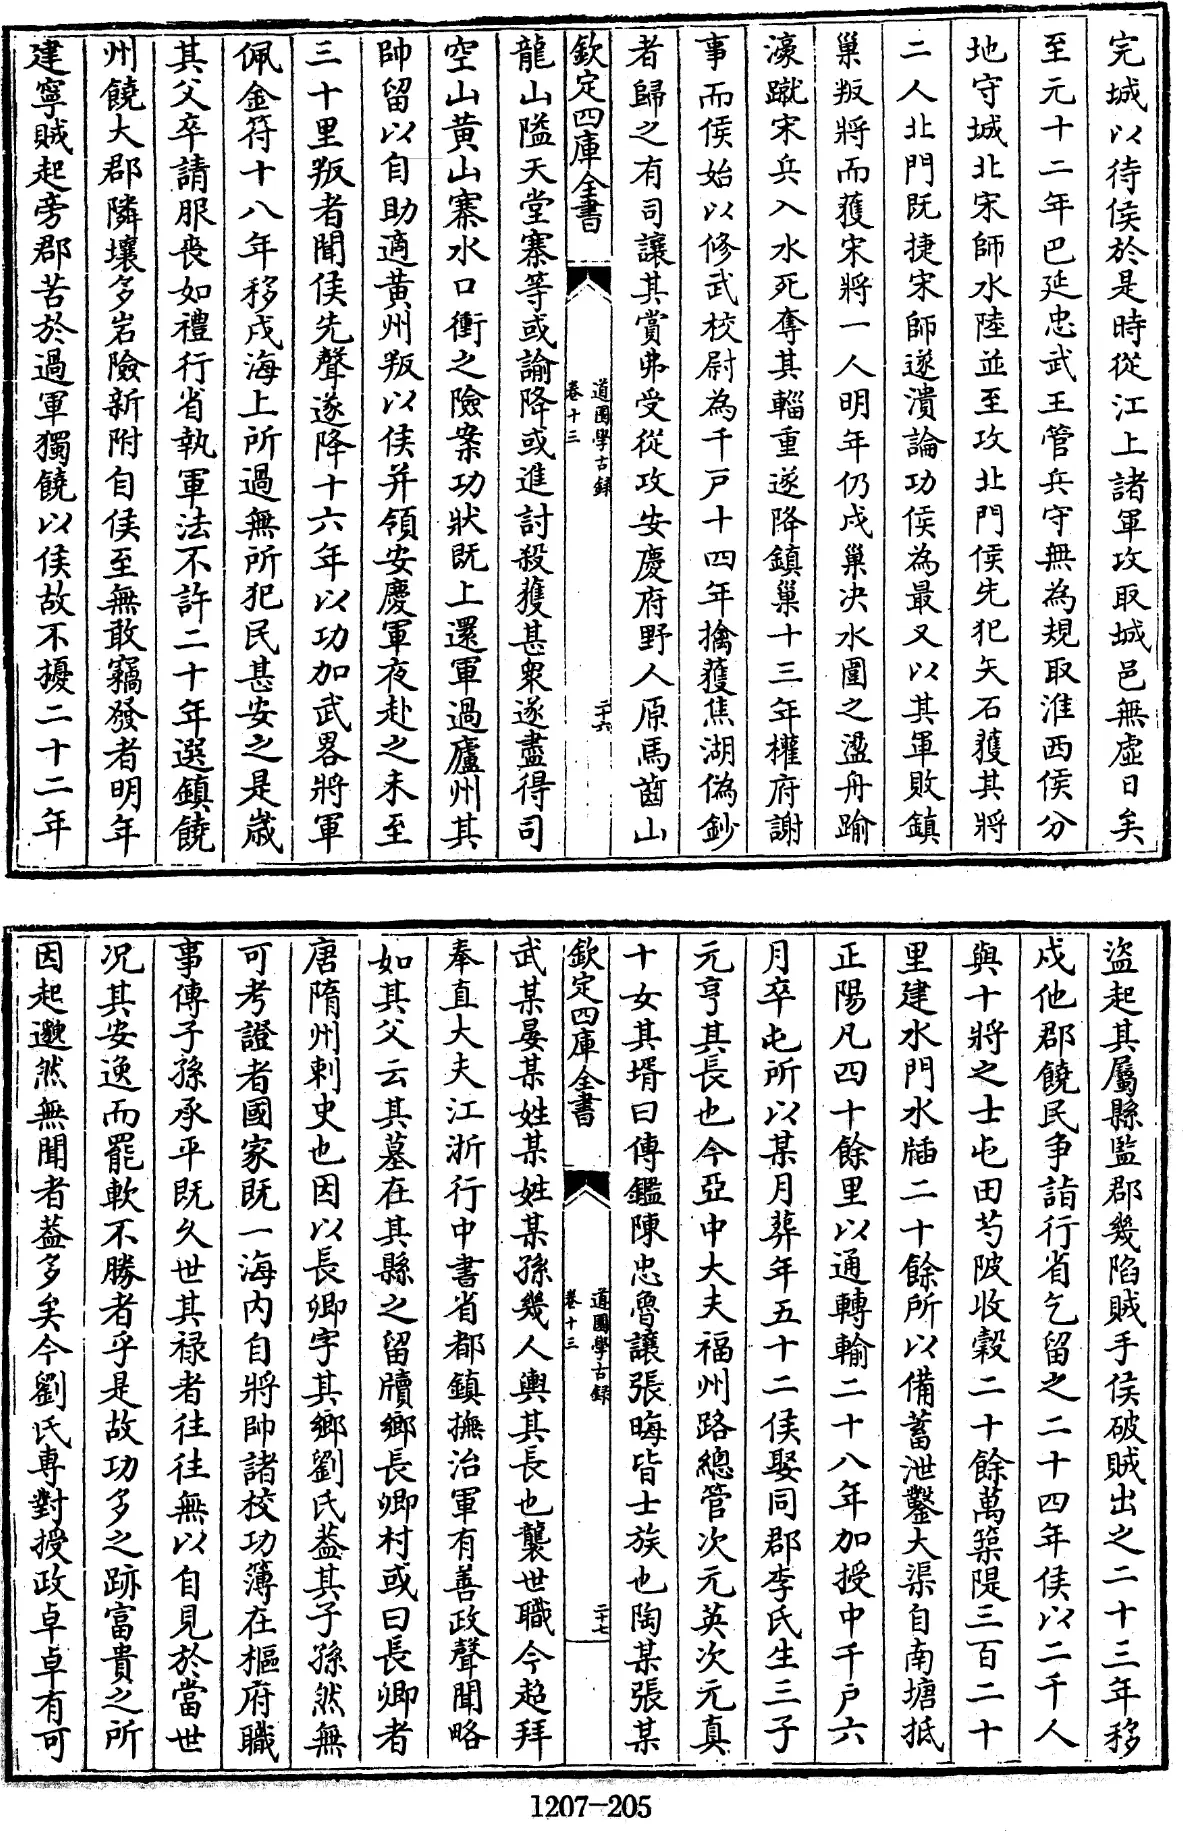 完城以待侯於是時從江上諸軍攻取城邑無虛日矣
至元十二年巴延忠武王管兵守無為規取淮西侯分
地守城北宋師水陸並至攻北門侯先犯矢石獲其將
二人北門既捷宋師遂潰論功侯為最又以其軍敗鎮
巢叛將而獲宋將一人明年仍戍巢决水圍之盪舟踰
濠蹴宋兵入水死奪其輜重遂降鎮巢十三年權府謝
事而侯始以修武校尉為千戸十四年擒獲焦湖偽鈔
者歸之有司讓其賞弗受從攻安慶府野人原馬茴山
欽定四庫全書
道園學古録
卷十三
二十六
龍山隘天堂寨等或諭降或進討殺獲甚衆遂盡得司
空山黄山寨水口衝之險案功狀既上還軍過廬州其
帥留以自助適黄州叛以侯并領安慶軍夜赴之未至
三十里叛者聞侯先聲遂降十六年以功加武畧將軍
佩金符十八年移戍海上所過無所犯民甚安之是歳
其父卒請服喪如禮行省執軍法不許二十年選鎮饒
州饒大郡隣壤多岩險新附自侯至無敢竊發者明年
建寧賊起旁郡苦於過軍獨饒以侯故不擾二十二年
盜起其屬縣監郡幾陷賊手侯破賊出之二十三年移
戍他郡饒民争詣行省乞留之二十四年侯以二千人
與十將之士屯田芍陂收穀二十餘萬築隄三百二十
里建水門水牐二十餘所以備蓄泄鑿大渠自南塘抵
正陽凡四十餘里以通轉輸二十八年加授中千戸六
月卒屯所以某月葬年五十二侯娶同郡李氏生三子
元亨其長也今亞中大夫福州路總管次元英次元真
十女其壻曰傳鑑陳忠魯讓張晦皆士族也陶某張某
欽定四庫全書
道園學古録
卷十三
二十七
武某晏某姓某姓某孫幾人輿其長也襲世職今超拜
奉直大夫江浙行中書省都鎮撫治軍有善政聲聞略
如其父云其墓在其縣之留牘鄉長卿村或曰長卿者
唐隋州刺史也因以長卿字其鄉劉氏葢其子孫然無
可考證者國家既一海内自將帥諸校功簿在樞府職
事傳子孫承平既久世其禄者往往無以自見於當世
况其安逸而罷軟不勝者乎是故功多之跡富貴之所
因起邈然無聞者葢多矣今劉氏專對授政卓卓有可
1207-205